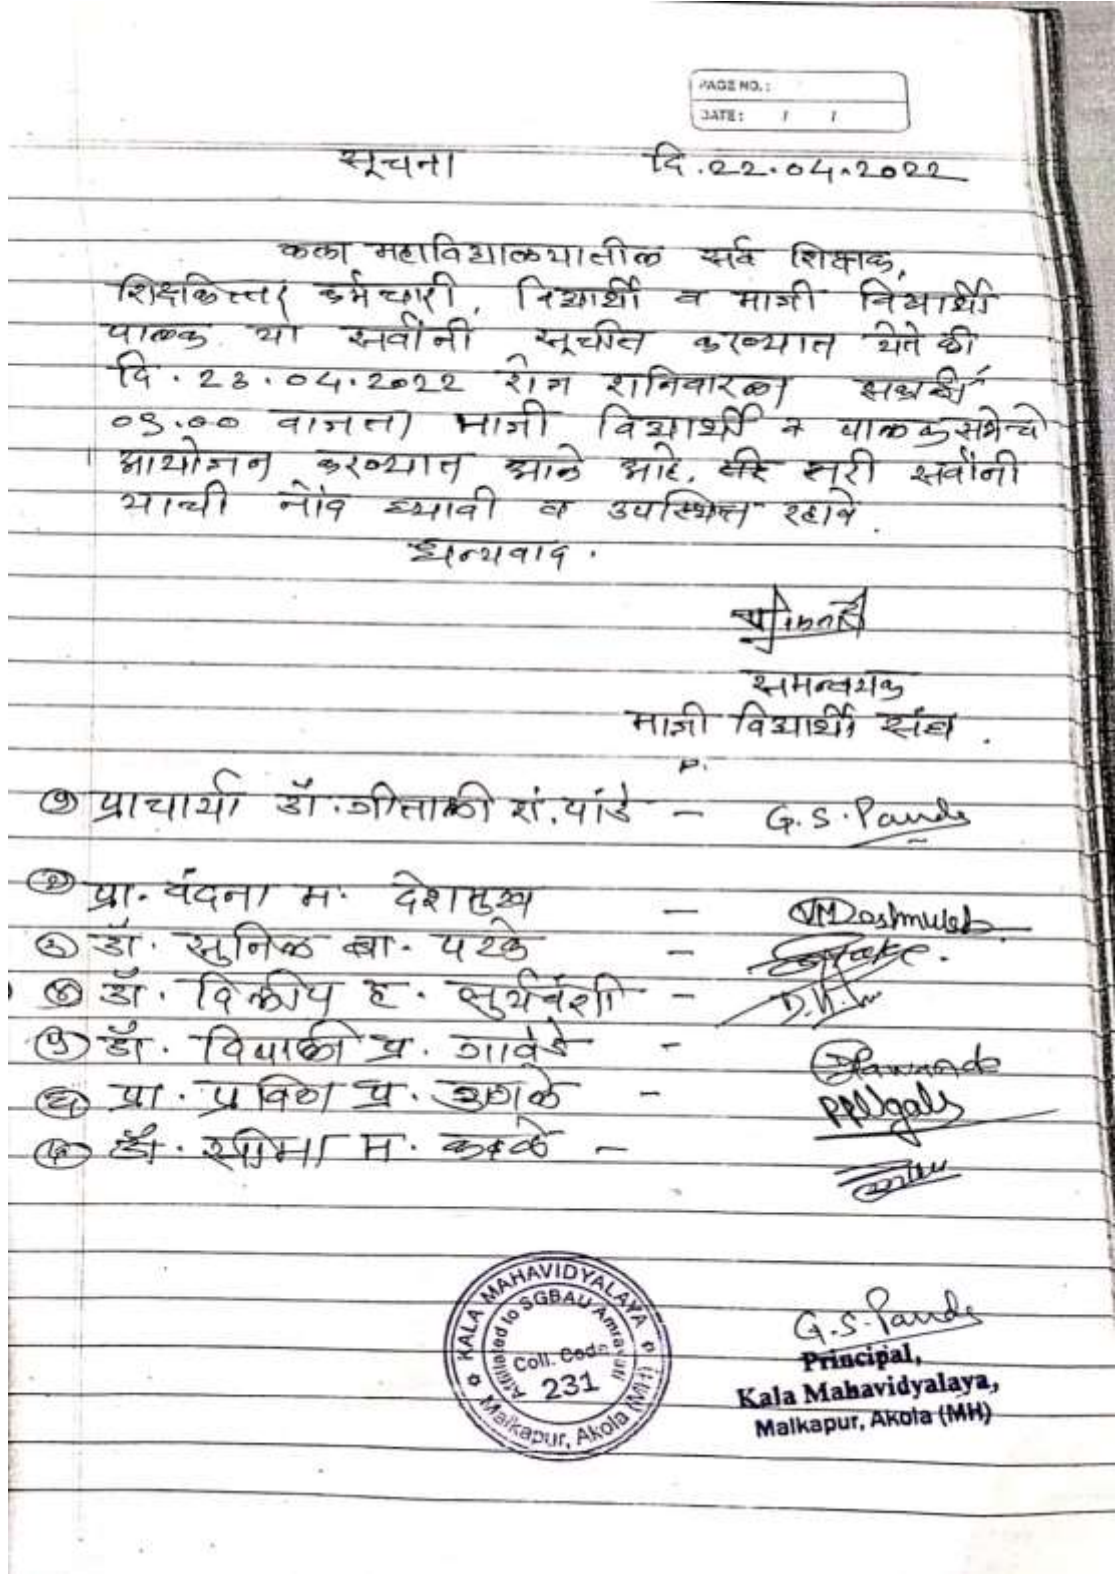 PAGE NO. :
DATE: / /
सूचना दि. 22.04.2022
कला महाविद्यालयातील सर्व शिक्षक,
शिक्षकेत्तर कर्मचारी, विद्यार्थी व माजी विद्यार्थी
पालक यां सर्वांनी सूचीत करण्यात येते की
दि. 23.04.2022 रोज शनिवारला
वाजता माजी विद्यार्थी व पालक सभेचे
आयोजन करण्यात आले आहे. तरी सर्वांनी
याची नोंद घ्यावी व उपस्थित रहावे.
धन्यवाद.
समन्वयक
माजी विद्यार्थी संघ.
P.
१ प्राचार्या डॉ. गीताली शं. पांडे - G. S. Pande
२ प्रा. वंदना म. देशमुख - VMDeshmukh
३ डॉ. सुनिल बा. -
४ डॉ. दिलीप ह. सुर्यवंशी -
५ डॉ. दिपाली प्र. गावंडे - Gawande
६ प्रा. प्रविण प्र. उगले - PPUgale
७ डॉ. सीमा म. -
KALA MAHAVIDYALAYA
Affiliated to SGBAU Amravati
Coll. Code
231
Malkapur, Akola (MH)
G. S. Pande
Principal,
Kala Mahavidyalaya,
Malkapur, Akola (MH)